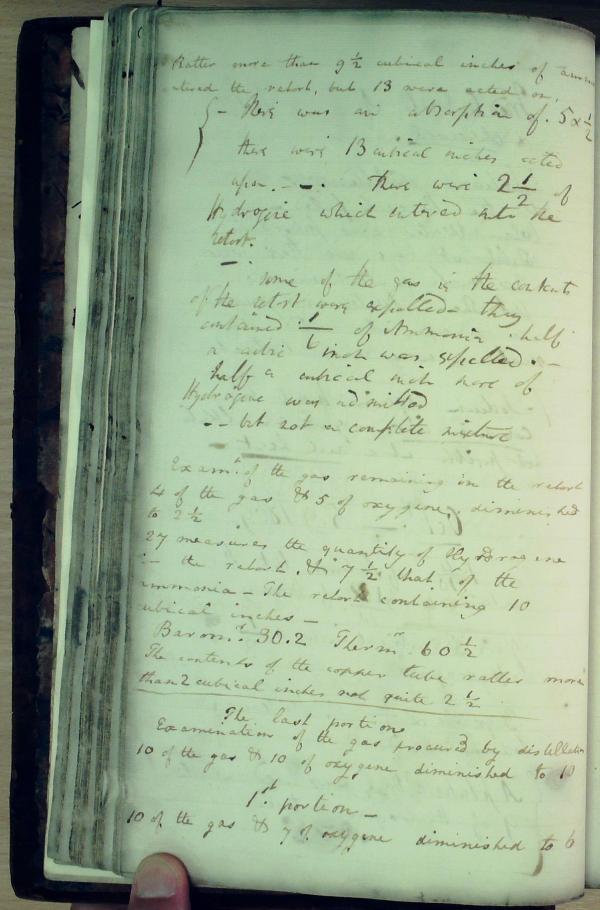 Rather more than 9 1/2 cubical inches of
entered the retort, but 13 were acted on,
– there was an absorption of. 5 x 1/2
there were 13 cubical inches acted
upon. – – . There were 2 1/2 of
Hydrogene which entered into the
retort.
– some of the gas in the contents
of the retort were expelled – they
contained of Ammonia. half
a cubic inch was expelled. –
half a cubical inch more of
Hydrogene was admitted
– – but not a complete mixture
Exam.n of the gas remaining in the retort
4 of the gas & 5 of oxygene, diminished
to 2 1/2
27 measures the quantity of Hydrogene
in the retort & 7 1/2 that of the
ammonia – The retort containing 10
cubical inches –
Barom.r 30.2 Therm.r 60 1/2
The contents of the copper tube rather more
than 2 cubical inches not quite 2 1/2
The last portions
Examination of the gas procured by distillation
10 of the gas & 10 of oxygene diminished to 10
1.st portion –
10 of the gas & 7 of oxygene diminished to 6